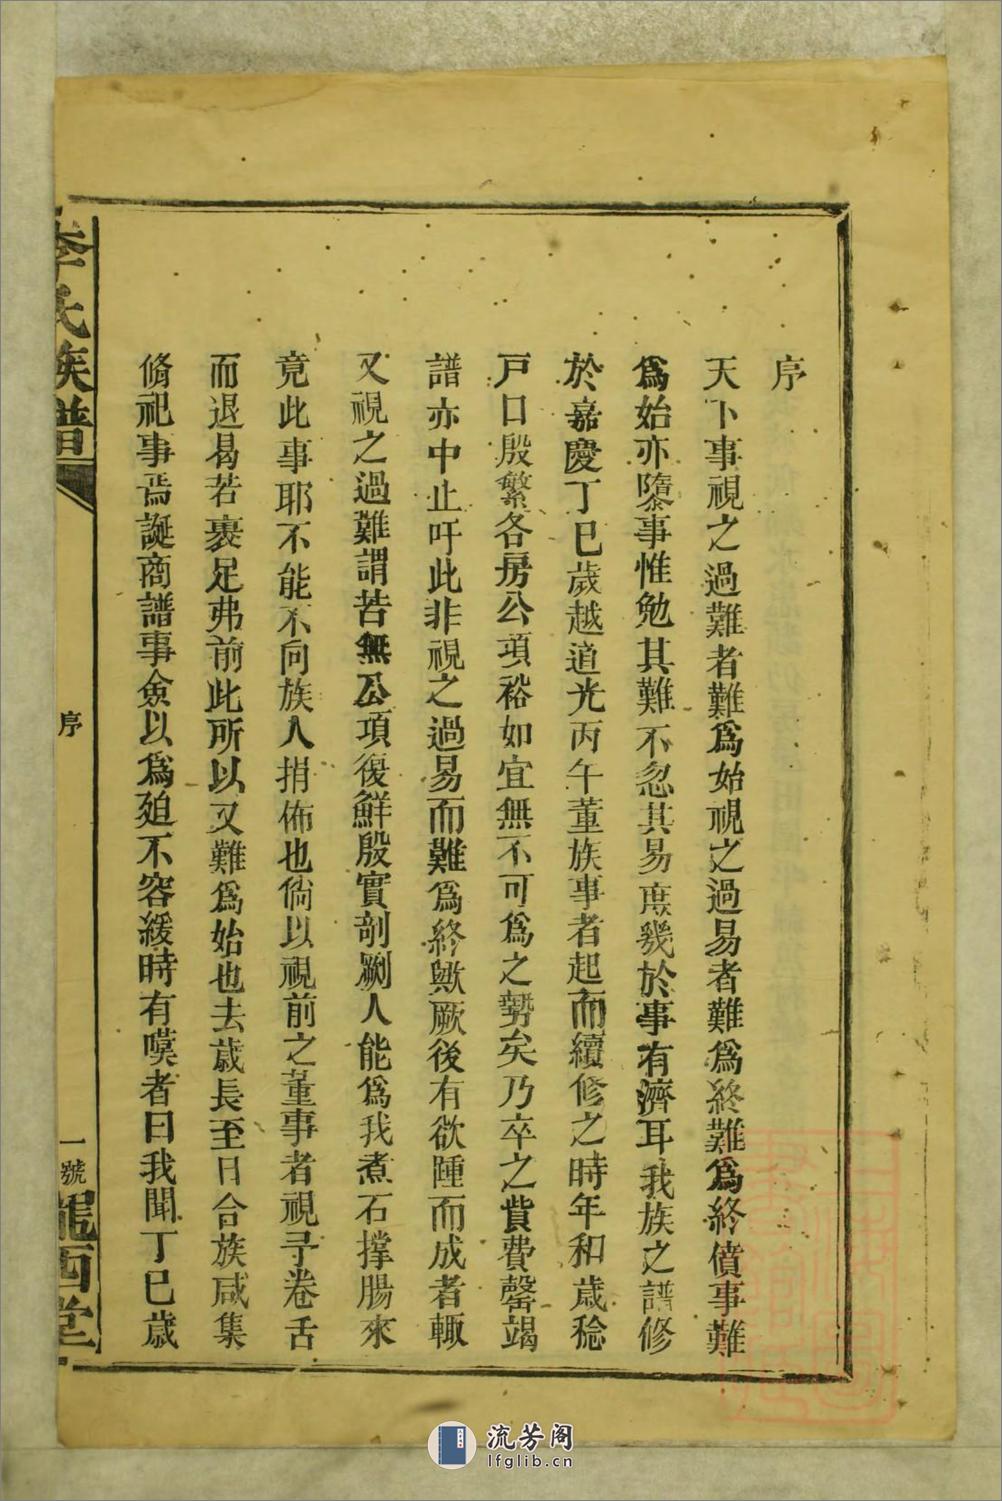 序
天下事視之過難者難爲始視之過易者難爲終難爲終僨事難
爲始亦隳事惟勉其難不忽其易庶幾於事有濟耳我族之譜修
於嘉慶丁巳歲越道光丙午董族事者起而續修之時年和歲稔
戸口殷繁各房公項裕如宜無不可爲之勢矣乃卒之貲費罄竭
譜亦中止吁此非視之過易而難爲終歟厥後有欲踵而成者輙
又視之過難謂苦無公項復鮮殷實剞劂人能爲我煮石撑腸來
竟此事耶不能不向族人捐佈也倘以視前之董事者視予卷舌
而退曷若裹足弗前此所以又難爲始也去歲長至日合族咸集
脩祀事焉誕商譜事僉以爲廹不容緩時有嘆者曰我聞丁巳歲
李氏族譜
序
一號
隴西堂
流芳阁
lfglib.cn